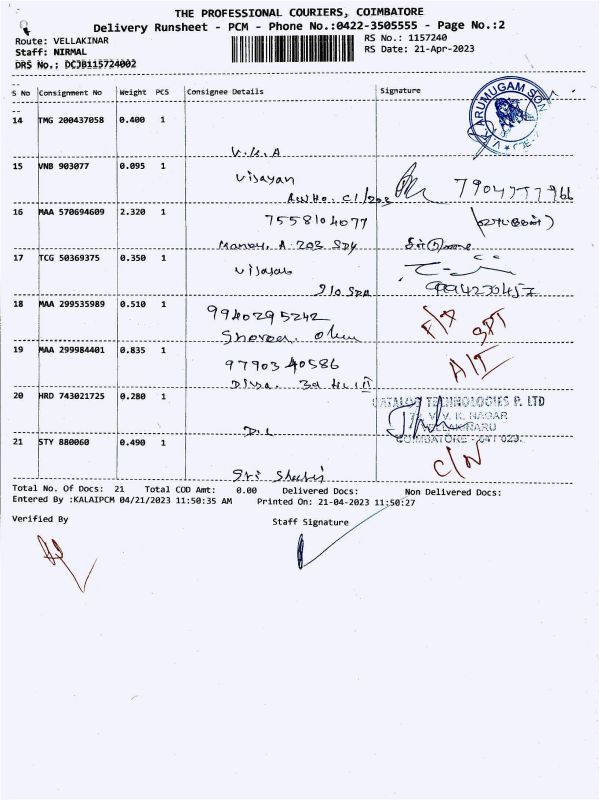 THE PROFESSIONAL COURIERS, COIMBATORE
Delivery Runsheet - PCM - Phone No.:0422-3505555 - Page No.:2
Route: VELLAKINAR RS No.: 1157240
Staff: NIRMAL RS Date: 21-Apr-2023
DRS No.: DCJB115724002
S No Consignment No Weight PCS Consignee Details Signature
ARUMUGAM SON
14 TMG 200437058 0.400 1
V.K.A
15 VNB 903077 0.095 1 Vijayan
C1/203
16 MAA 570694609 2.320 1 7558104077
A 203 SPY
17 TCG 50369375 0.350 1
994230457
18 MAA 299535989 0.510 1 9940295242 F/A
19 MAA 299984401 0.835 1 97903 40586 A/I
Divya.
20 HRD 743021725 0.280 1 CATALOG TECHNOLOGIES P. LTD
V. K. NAGAR
VELLAKINARU
COIMBATORE - 641 029.
D.L
21 STY 880060 0.490 1 C/N
Sri
Total No. Of Docs: 21 Total COD Amt: 0.00 Delivered Docs: Non Delivered Docs:
Entered By :KALAIPCM 04/21/2023 11:50:35 AM Printed On: 21-04-2023 11:50:27
Verified By Staff Signature